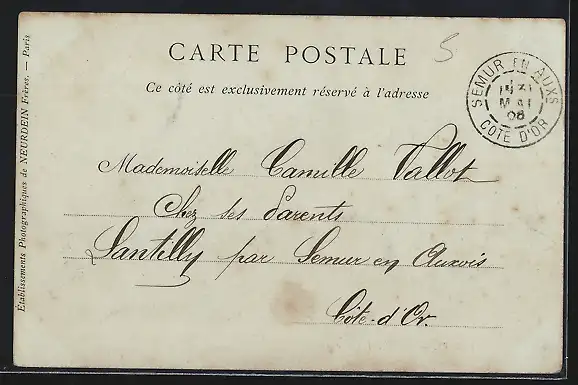 CARTE POSTALE
5
Ce côté est exclusivement réservé à l'adresse
SEMUR EN AUXS
MAI
CÔTE D'OR
Mademoiselle Camille Vallot
Chez ses Parents
Santilly par Semur en Auxois
Côte-d'Or.
Établissements Photographiques de NEURDEIN Frères. — Paris